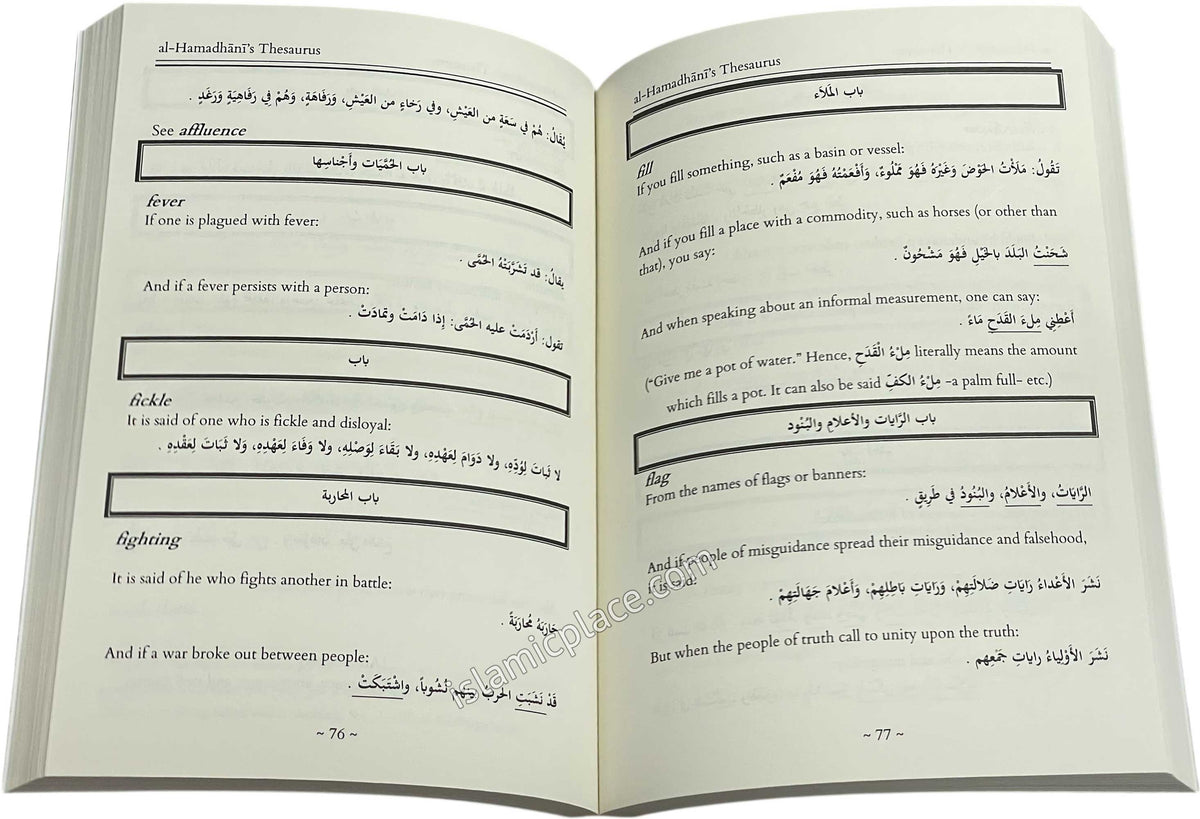 al-Hamadhānī's Thesaurus
يُقالُ: هُمْ في سَعَةٍ من العَيْشِ، وفي رَخاءٍ من العَيْشِ، وَرَفاهَةٍ، وَهُمْ في رَفاهِيَةٍ وَرَغَدٍ .
See affluence
باب الحُمَّيَات وأجْناسِها
fever
If one is plagued with fever:
يقالُ: قد تَشَرَّبَتْهُ الحُمَّى .
And if a fever persists with a person:
تقول: أرْدَمَتْ عليه الحُمَّى: إذا دَامَتْ وتمَادَتْ .
باب
fickle
It is said of one who is fickle and disloyal:
لا ثَباتَ لِوُدِّهِ، ولا دَوَامَ لِعَهْدِهِ، ولا بَقَاءَ لِوَصْلِهِ، ولا وَفَاءَ لِعَهْدِهِ، وَلا ثَبَاتَ لِعَقْدِهِ .
باب المحاربة
fighting
It is said of he who fights another in battle:
حَارَبَهُ مُحَارَبَةً .
And if a war broke out between people:
قَدْ نَشَبَتِ الحَربُ بَيْنَهم نُشُوباً، واشْتَبَكَتْ .
~ 76 ~
al-Hamadhānī's Thesaurus
باب المَلاَء
fill
If you fill something, such as a basin or vessel:
تَقُولُ: مَلَأْتُ الحَوْضَ وَغَيْرَهُ فَهُوَ مَمْلُوءٌ، وَأَفْعَمْتُهُ فَهُوَ مُفْعَمٌ .
And if you fill a place with a commodity, such as horses (or other than
that), you say:
شَحَنْتُ البَلَدَ بالخَيْلِ فَهُوَ مَشْحُونٌ .
And when speaking about an informal measurement, one can say:
أَعْطِنِي مِلءَ القَدَحِ مَاءً .
("Give me a pot of water." Hence, مِلْءُ الْقَدَحِ literally means the amount
which fills a pot. It can also be said مِلْءُ الكفِّ -a palm full- etc.)
باب الرَّايات والأعلامِ والبُنُود
flag
From the names of flags or banners:
الرَّايَاتُ، والأَعْلامُ، والبُنُودُ في طَرِيقٍ .
And if people of misguidance spread their misguidance and falsehood,
it is said:
نَشَرَ الأَعْداءُ رَاياتِ ضَلالَتِهِمْ، وَرَاياتِ بَاطِلِهِمْ، وَأَعْلامَ جَهَالَتِهِمْ .
But when the people of truth call to unity upon the truth:
نَشَرَ الأَوْلِياءُ راياتِ جَمْعِهم .
~ 77 ~
islamicplace.com